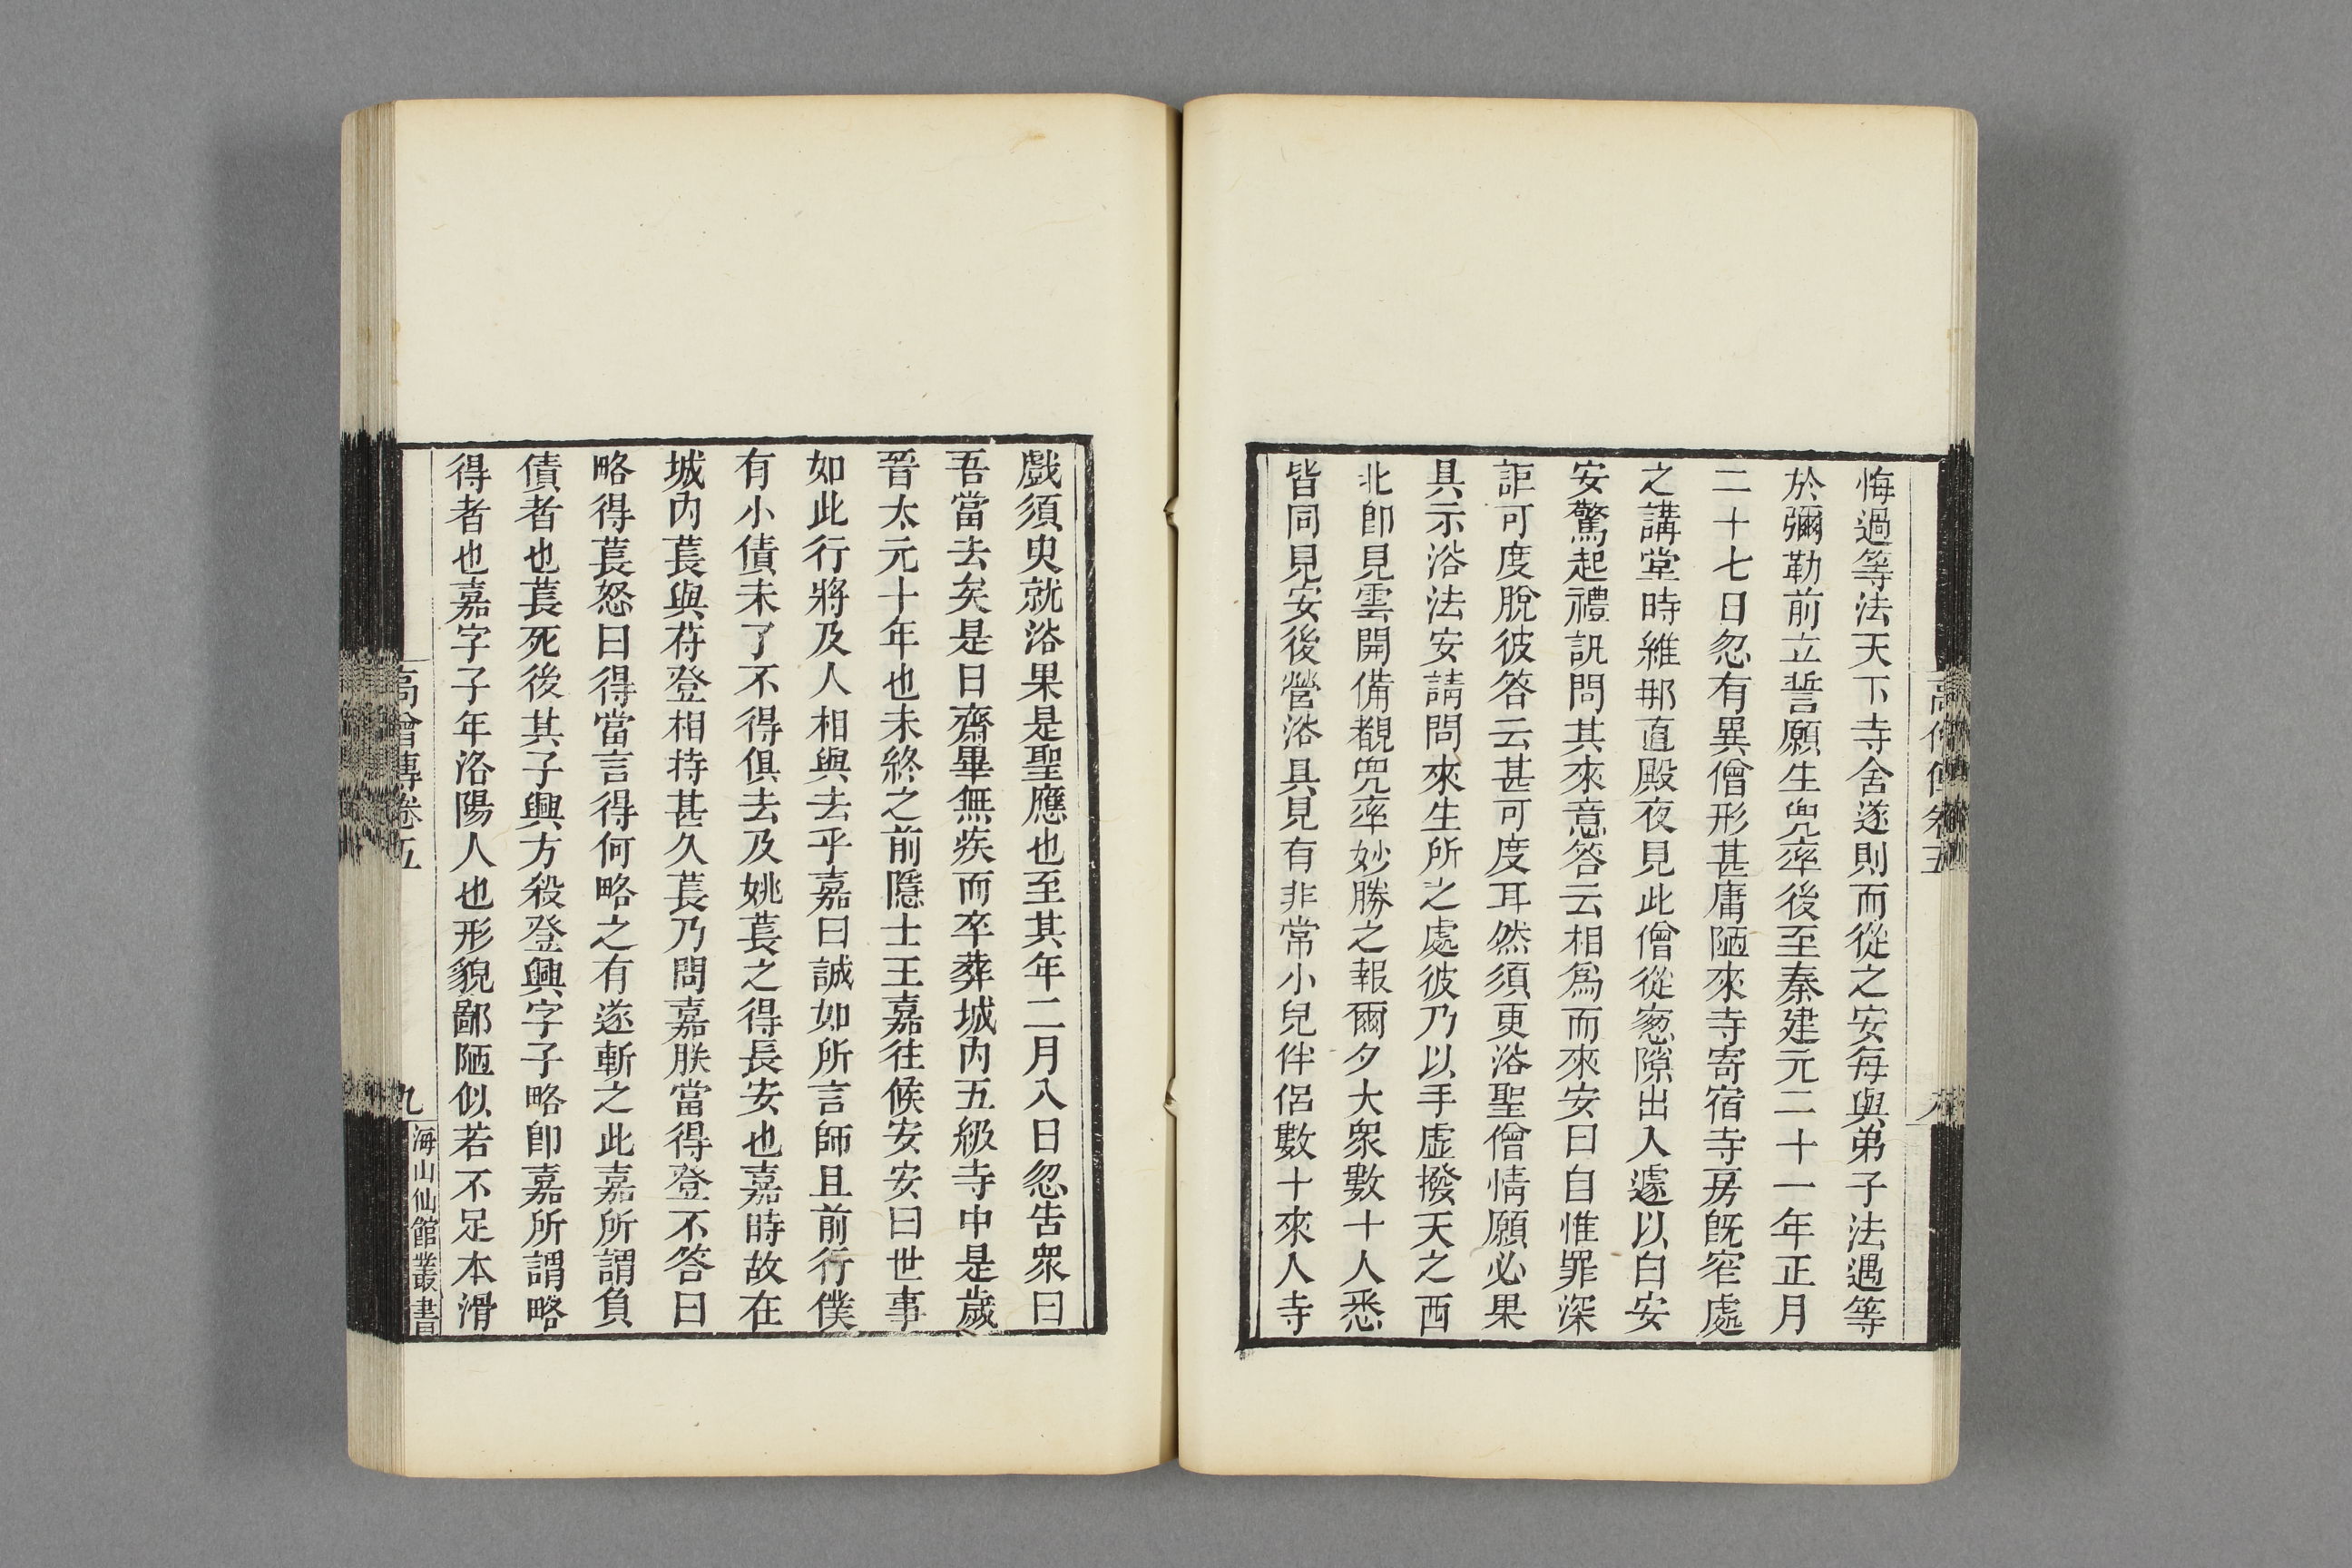 悔過等法天下寺舍遂則而從之安每與弟子法遇等
於彌勒前立誓願生兜率後至秦建元二十一年正月
二十七日忽有異僧形甚庸陋來寺寄宿寺房旣窄處
之講堂時維那直殿夜見此僧從窻隙出入遽以白安
安驚起禮訊問其來意答云相爲而來安曰自惟罪深
詎可度脫彼答云甚可度耳然須更浴聖僧情願必果
具示浴法安請問來生所之處彼乃以手虛撥天之西
北卽見雲開備覩兜率妙勝之報爾夕大衆數十人悉
皆同見安後營浴具見有非常小兒伴侶數十來入寺
戲須臾就浴果是聖應也至其年二月八日忽告衆曰
吾當去矣是日齋畢無疾而卒葬城内五級寺中是歲
晉太元十年也未終之前隱士王嘉往候安安曰世事
如此行將及人相與去乎嘉曰誠如所言師且前行僕
有小債未了不得俱去及姚萇之得長安也嘉時故在
城内萇與苻登相持甚久萇乃問嘉朕當得登不答曰
略得萇怒曰得當言得何略之有遂斬之此嘉所謂負
債者也萇死後其子興方殺登興字子略卽嘉所謂略
得者也嘉字子年洛陽人也形貌鄙陋似若不足本滑
高僧傳卷五
九
海山仙館叢書